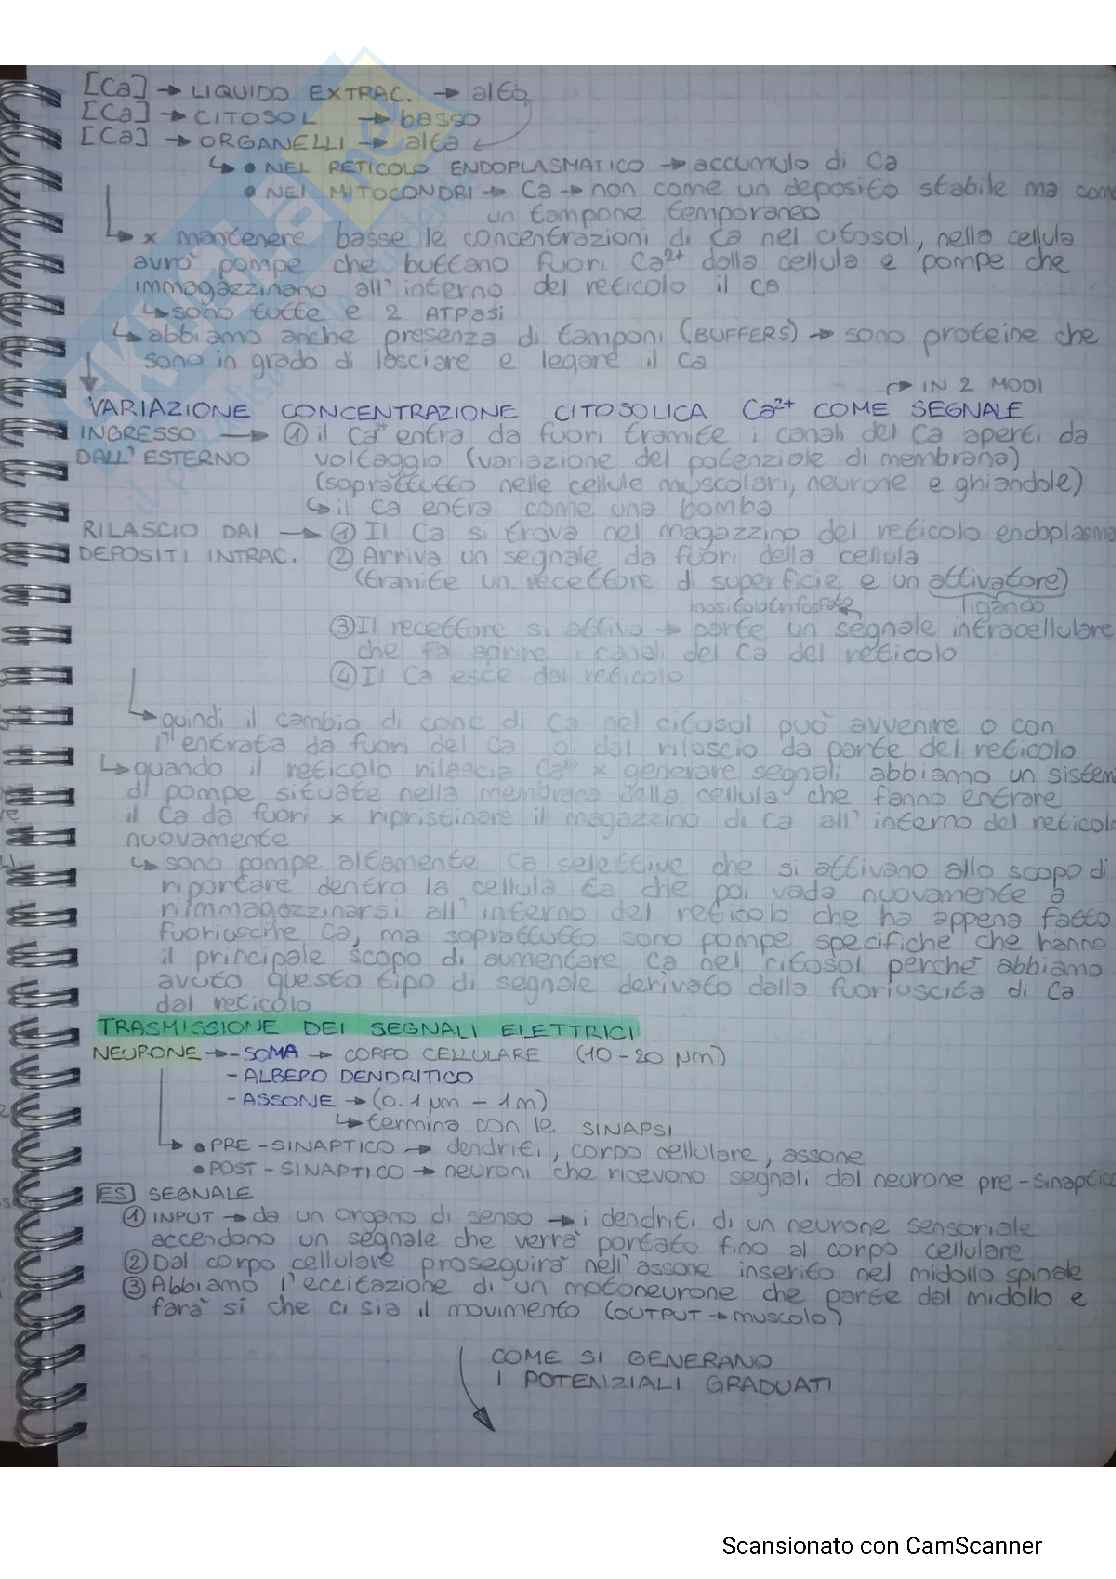 [Ca] → LIQUIDO EXTRAC. → alta
[Ca] → CITOSOL → basso
[Ca] → ORGANELLI → alta
↳ • NEL RETICOLO ENDOPLASMATICO → accumulo di Ca
• NEI MITOCONDRI → Ca → non come un deposito stabile ma come
un tampone temporaneo
↳ x mantenere basse le concentrazioni di Ca nel citosol, nella cellula
avrò pompe che buttano fuori Ca2+ dalla cellula e pompe che
immagazzinano all'interno del reticolo il Ca
↳ sono tutte e 2 ATPasi
↳ abbiamo anche presenza di tamponi (BUFFERS) → sono proteine che
sono in grado di lasciare e legare il Ca
↱ IN 2 MODI
VARIAZIONE CONCENTRAZIONE CITOSOLICA Ca2+ COME SEGNALE
INGRESSO → ① il Ca+ entra da fuori tramite i canali del Ca aperti da
DALL'ESTERNO voltaggio (variazione del potenziale di membrana)
(soprattutto nelle cellule muscolari, neurone e ghiandole)
↳ il Ca entra come una bomba
RILASCIO DAI → ① Il Ca si trova nel magazzino del reticolo endoplasma
DEPOSITI INTRAC. ② Arriva un segnale da fuori della cellula
(tramite un recettore di superficie e un attivatore)
inositolotrifosfato ligando
③ Il recettore si attiva → parte un segnale intracellulare
che fa aprire i canali del Ca del reticolo
④ Il Ca esce dal reticolo
↳ quindi il cambio di conc di Ca nel citosol può avvenire o con
l'entrata da fuori del Ca o dal rilascio da parte del reticolo
↳ quando il reticolo rilascia Ca2+ x generare segnali abbiamo un sistem
di pompe situate nella membrana della cellula che fanno entrare
il Ca da fuori x ripristinare il magazzino di Ca all'interno del reticolo
nuovamente
↳ sono pompe altamente Ca selettive che si attivano allo scopo di
riportare dentro la cellula Ca che poi vada nuovamente a
rimmagazzinarsi all'interno del reticolo che ha appena fatto
fuoriuscire Ca, ma soprattutto sono pompe specifiche che hanno
il principale scopo di aumentare Ca nel citosol perché abbiamo
avuto questo tipo di segnale derivato dalla fuoriuscita di Ca
dal reticolo
TRASMISSIONE DEI SEGNALI ELETTRICI
NEURONE → - SOMA → CORPO CELLULARE (10-20 µm)
- ALBERO DENDRITICO
- ASSONE → (0.1 µm - 1 m)
↳ termina con le SINAPSI
↳ • PRE-SINAPTICO → dendriti, corpo cellulare, assone
• POST-SINAPTICO → neuroni che ricevono segnali dal neurone pre-sinaptico
ES SEGNALE
① INPUT → da un organo di senso → i dendriti di un neurone sensoriale
accendono un segnale che verrà portato fino al corpo cellulare
② Dal corpo cellulare proseguirà nell'assone inserito nel midollo spinale
③ Abbiamo l'eccitazione di un motoneurone che parte dal midollo e
farà sì che ci sia il movimento (OUTPUT → muscolo)
COME SI GENERANO
I POTENZIALI GRADUATI
Scansionato con CamScanner